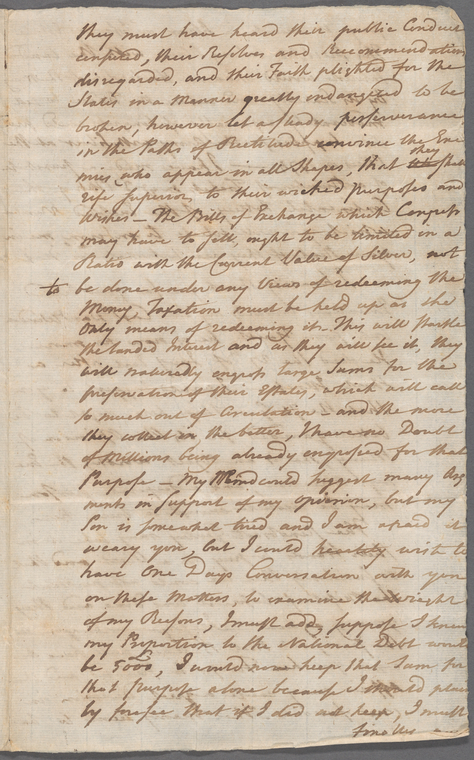 they must have heard their public Conduct
censured, their Resolves and Recommendations
disregarded, and their Faith plighted for the
States in a manner greatly endangered to be
broken, however let a steady perserverance
in the Paths of Rectitude convince the Ene
they
mies, who appear in all Shapes, that shall
rise Superior to their wicked purposes and
Wishes — The Bills of Exchange which Congress
may have to sell, ought to be limited in a
Ratio with the Current Value of Silver, not
to be done under any Views of redeeming the
Money, Taxation must be held up as the
only means of redeeming it. This will startle
the landed Interest and as they will see it, they
will naturally engross large Sums for the
preservation of their Estates, which will call
so much out of Circulation — and the more
they collect in the better, I have no Doubt
of Millions being already engrossed for that
Purpose — My Mind could suggest many Arg
ments in Support of my opinion, but my
Son is somewhat tired and I am afraid it
weary you, but I could heartily wish to
have One Days Conversation with you
on these Matters, to examine the weight
of my Reasons, I must add, suppose I knew
my Proportion to the National Debt would
be 5000, I would now keep that Sum for
that purpose alone because I should plain
ly foresee that if I did not keep, I must